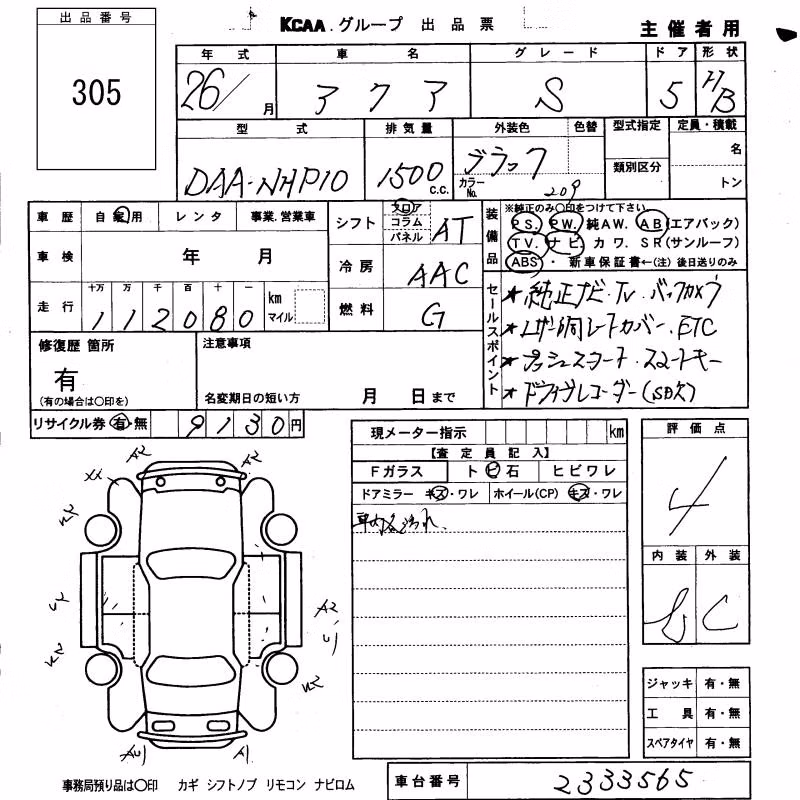 出品番号
305
KCAA.グループ 出品票
主催者用
年式 車名 グレード ドア 形状
26/ 月 アクア S 5 H/B
型式 排気量 外装色 色替 型式指定 定員・積載
DAA-NHP10 1500 c.c. ブラック 名
カラーNo. 209 類別区分 トン
車歴 自家用 レンタ 事業.営業車
車検 年 月
走行 十万 万 千 百 十 一 km マイル
112080
シフト フロア コラム パネル AT
冷房 AAC
燃料 G
装備品 ※純正のみ〇印をつけて下さい
PS. PW. 純AW. AB(エアバック)
TV. ナビ. カワ. SR(サンルーフ)
ABS・新車保証書←(注) 後日送りのみ
セールスポイント
★純正ナビ・TV・バックカメラ
★レザー調シートカバー・ETC
★プッシュスタート・スマートキー
★ドライブレコーダー(SD欠)
修復歴 箇所
有
(有の場合は〇印を)
注意事項
名変期日の短い方 月 日まで
リサイクル券 有・無 9130円
現メーター指示 km
【査定員記入】
Fガラス トビ石 ヒビワレ
ドアミラー キズ・ワレ ホイール(CP) キズ・ワレ
車内 汚れ.
評価点
4
内装 外装
C
A2 A2
XX
A2
A1
ジャッキ 有・無
工具 有・無
スペアタイヤ 有・無
事務局預り品は〇印 カギ シフトノブ リモコン ナビロム
車台番号 2333565